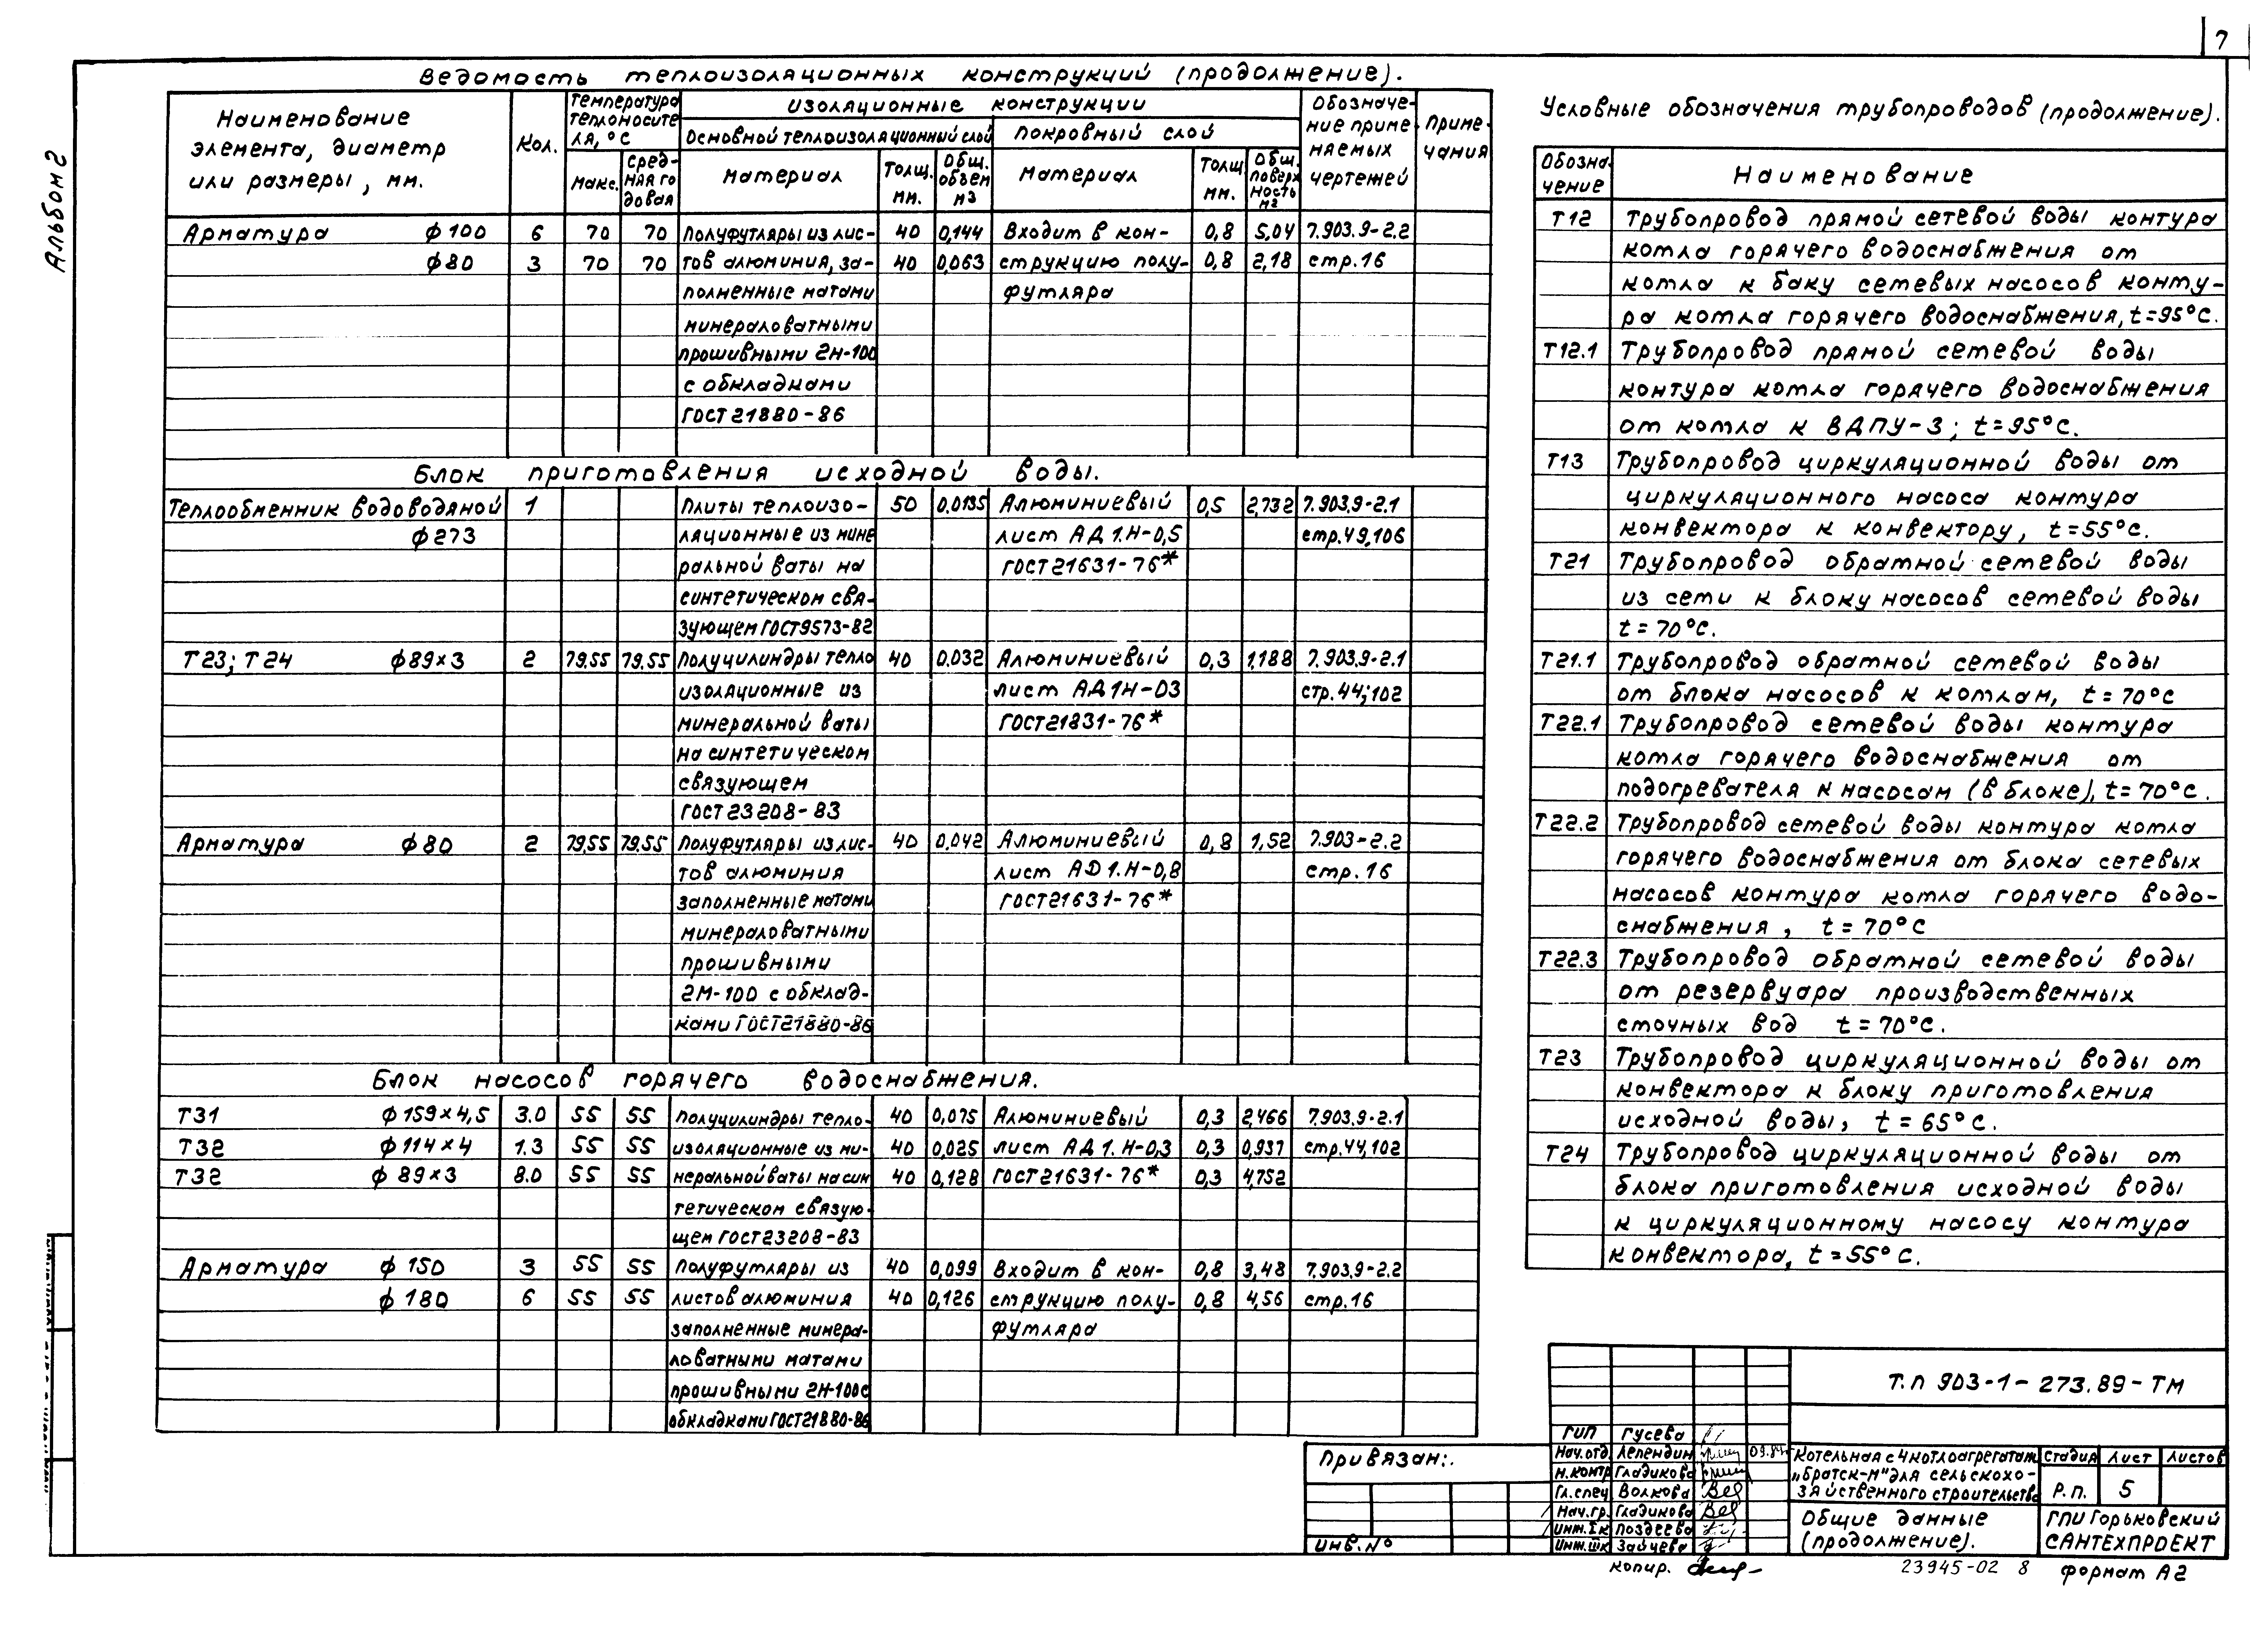 7
Альбом 2
Ведомость теплоизоляционных конструкций (продолжение).
Наименование элемента, диаметр или размеры, мм.
Кол.
Температура теплоносителя, °С
Макс.
Сред-няя годовая
Изоляционные конструкции
Основной теплоизоляционный слой
Покровный слой
Материал
Толщ. мм.
Общ. объем м3
Материал
Толщ. мм.
Общ. поверхность м2
Обозначе-ние приме-няемых чертежей
Приме-чания
Арматура ф100 6 70 70 Полуфутляры из лис- 40 0,144 Входит в кон- 0,8 5,04 7.903.9-2.2
ф80 3 70 70 тов алюминия, за- 40 0,063 струкцию полу- 0,8 2,18 стр.16
полненные матами футляра
минераловатными
прошивными 2М-100
с обкладками
ГОСТ 21880-86
Блок приготовления исходной воды.
Теплообменник водоводяной 1 Плиты теплоизо- 50 0.0135 Алюминиевый 0,5 2,732 7.903.9-2.1
ф273 ляционные из мине лист АД1.Н-0,5 стр.49,106
ральной ваты на ГОСТ21631-76*
синтетическом свя-
зующем ГОСТ9573-82
Т23; Т24 ф89×3 2 79.55 79.55 Полуцилиндры тепло 40 0.032 Алюминиевый 0,3 1,188 7.903.9-2.1
изоляционные из лист АД1Н-03 стр.44;102
минеральной ваты ГОСТ21831-76*
на синтетическом
связующем
ГОСТ 23208-83
Арматура ф80 2 79.55 79.55 Полуфутляры из лис- 40 0.042 Алюминиевый 0,8 1,52 7.903-2.2
тов алюминия лист АД1.Н-0,8 стр.16
заполненные матами ГОСТ21631-76*
минераловатными
прошивными
2М-100 с обклад-
ками ГОСТ21880-86
Блок насосов горячего водоснабжения.
Т31 ф159×4,5 3.0 55 55 полуцилиндры тепло- 40 0,075 Алюминиевый 0.3 2,466 7.903.9-2.1
Т32 ф114×4 1.3 55 55 изоляционные из ми- 40 0,025 лист АД1.Н-0,3 0.3 0,937 стр.44,102
Т32 ф89×3 8.0 55 55 неральной ваты на син 40 0,128 ГОСТ21631-76* 0.3 4,752
тетическом связую-
щем ГОСТ23208-83
Арматура ф150 3 55 55 Полуфутляры из 40 0,099 Входит в кон- 0,8 3,48 7.903.9-2.2
ф180 6 55 55 листов алюминия 40 0,126 струкцию полу- 0,8 4,56 стр.16
заполненные минера- футляра
ловатными матами
прошивными 2М-100 с
обкладками ГОСТ21880-86
Условные обозначения трубопроводов (продолжение).
Обозна-чение
Наименование
Т12 Трубопровод прямой сетевой воды контура
котла горячего водоснабжения от
котла к баку сетевых насосов конту-
ра котла горячего водоснабжения, t=95°С.
Т12.1 Трубопровод прямой сетевой воды
контура котла горячего водоснабжения
от котла к ВДПУ-3; t=95°С.
Т13 Трубопровод циркуляционной воды от
циркуляционного насоса контура
конвектора к конвектору, t=55°С.
Т21 Трубопровод обратной сетевой воды
из сети к блоку насосов сетевой воды
t=70°С.
Т21.1 Трубопровод обратной сетевой воды
от блока насосов к котлам, t=70°С
Т22.1 Трубопровод сетевой воды контура
котла горячего водоснабжения от
подогревателя к насосам (в блоке), t=70°С.
Т22.2 Трубопровод сетевой воды контура котла
горячего водоснабжения от блока сетевых
насосов контура котла горячего водо-
снабжения, t=70°С
Т22.3 Трубопровод обратной сетевой воды
от резервуара производственных
сточных вод t=70°С.
Т23 Трубопровод циркуляционной воды от
конвектора к блоку приготовления
исходной воды, t=65°С.
Т24 Трубопровод циркуляционной воды от
блока приготовления исходной воды
к циркуляционному насосу контура
конвектора, t=55°С.
Привязан:
Инв.№
Т.П 903-1-273.89-ТМ
ГИП Гусева
Нач.отд Лепендин
Н.контр Гладикова
Гл.спец Волкова
Нач.гр. Гладикова
Инж.Iк Поздеева
Инж.IIк Зайцева
Котельная с 4 котлоагрегатам
„Братск-М" для сельскохо-
зяйственного строительства
Стадия Лист Листов
Р.п. 5
Общие данные
(продолжение).
ГПИ Горьковский
САНТЕХПРОЕКТ
Копир.
23945-02 8
Формат А2